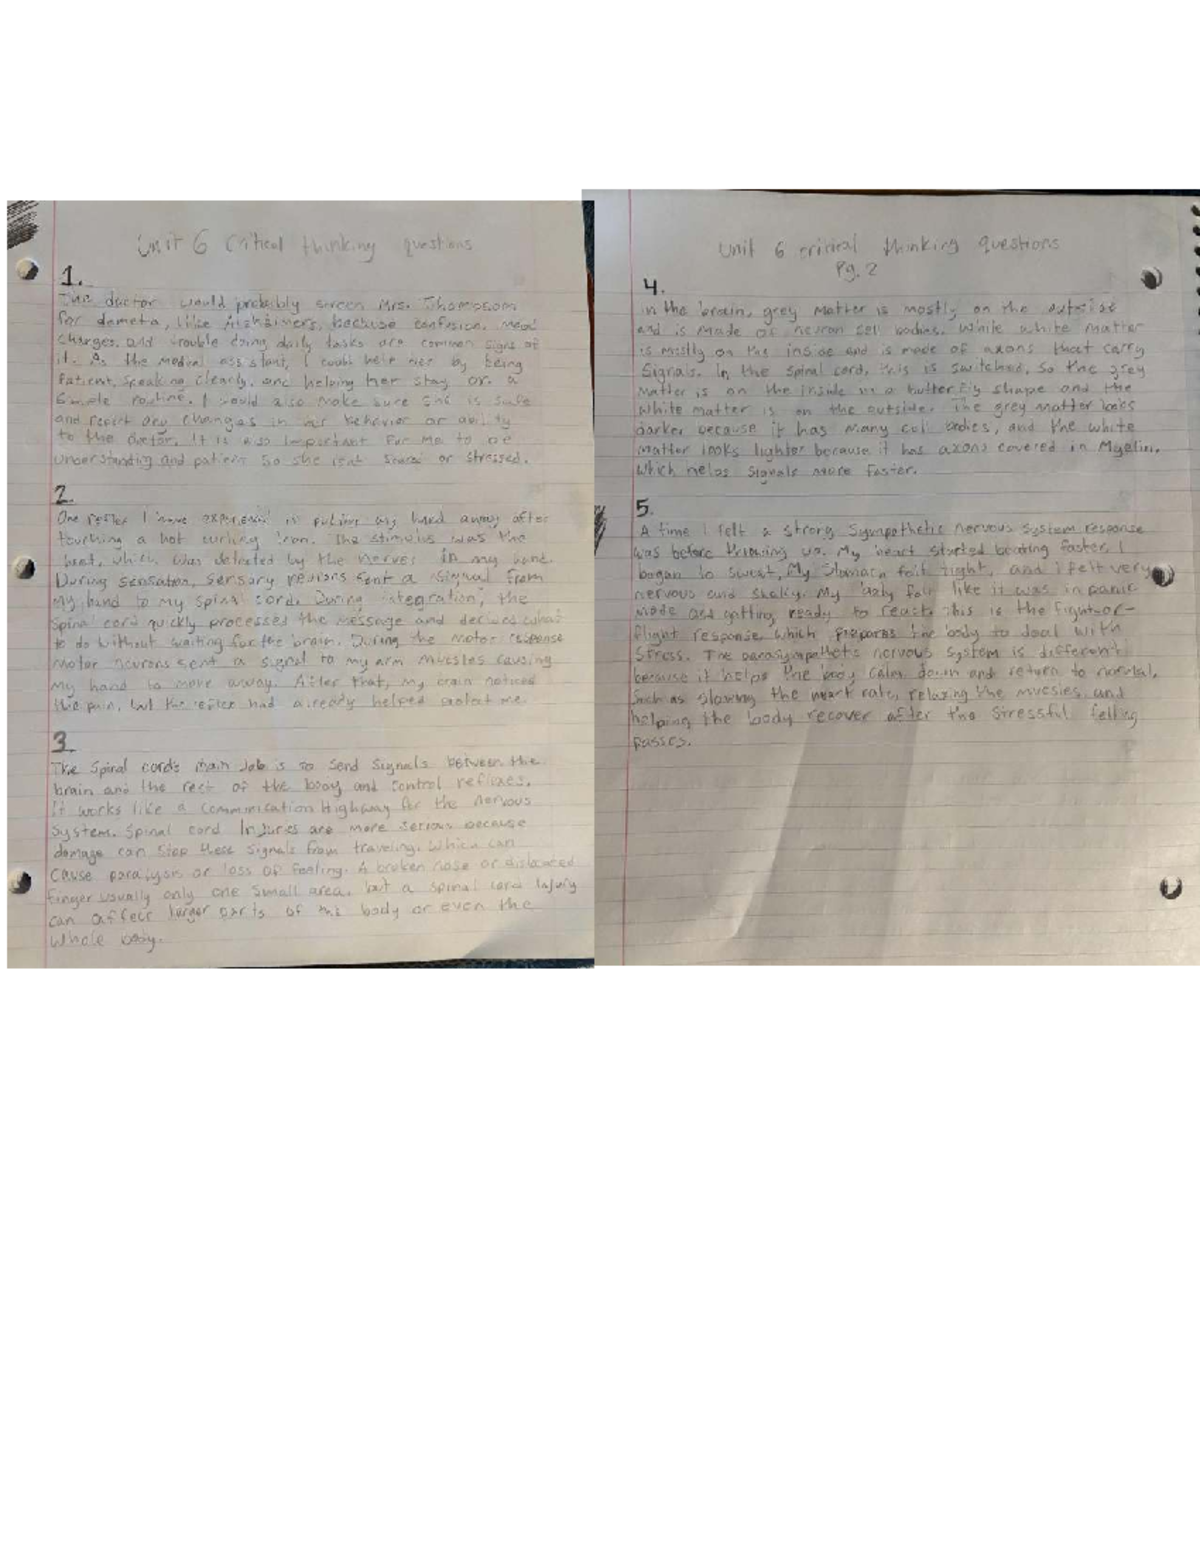 Unit 6 Critical thinking questions
1.
The doctor would probably screen Mrs. Thompsom
for dameta, like Alzhaimers, because confusion, mood
changes, and trouble doing daily tasks are common signs of
it. As the medial assistant, I could help her by being
Patient, speaking clearly, and helping her stay on a
Simple routine. I would also make sure she is safe
and report any changes in her behavior or ability
to the doctor. It is also important for me to be
understanding and patient so she isent scared or stressed.
2.
One reflex I have experienced is pulling my hand away after
touching a hot curling iron. The stimulus was the
heat, which was detected by the nerves in my hand.
During sensation, sensory neurons sent a signal from
my hand to my spinal cord. During integration, the
Spinal cord quickly processed the message and decided what
to do without waiting for the brain. During the motor response
motor neurons sent a signal to my arm muscles causing
my hand to move away. After that, my brain notices
the pain, but the reflex had already helped protect me.
3.
The Spinal cords main Job is to send signals between the
brain and the rest of the body and control reflexes.
It works like a commnication Highway for the nervous
System. Spinal cord Injuries are more serious because
damage can stop these signals from traveling. Which can
cause paralysis or loss of feeling. A broken nose or dislocated
finger usually only one small area, but a spinal cord Injury
can affect larger parts of the body or even the
whole body.
Unit 6 critical thinking questions
Pg. 2
4.
in the brain, grey matter is mostly on the outside
and is made of neuron cell bodies. While white matter
is mostly on the inside and is made of axons thact carry
Signals. In the spinal cord, this is switched, so the grey
matter is on the inside in a butterfly shape and the
white matter is on the outside. The grey matter looks
darker because it has many cell bodies, and the white
matter looks lighter because it has axons covered in Myelin,
which helps signals move faster.
5.
A time I felt a strong Sympathetic nervous system response
was before throwing up. My heart started beating faster, I
began to sweat, My Stomach felt tight, and i felt very
nervous and shaky. My body felt like it was in panic
mode and getting ready to react. This is the fight-or-
flight response, which prepares the body to deal with
Stress. The parasympathetic nervous system is different
because it helps the body calm down and return to normal,
Such as slowing the heart rate, relaxing the muscles, and
helping the body recover after the stressful felling
passes.